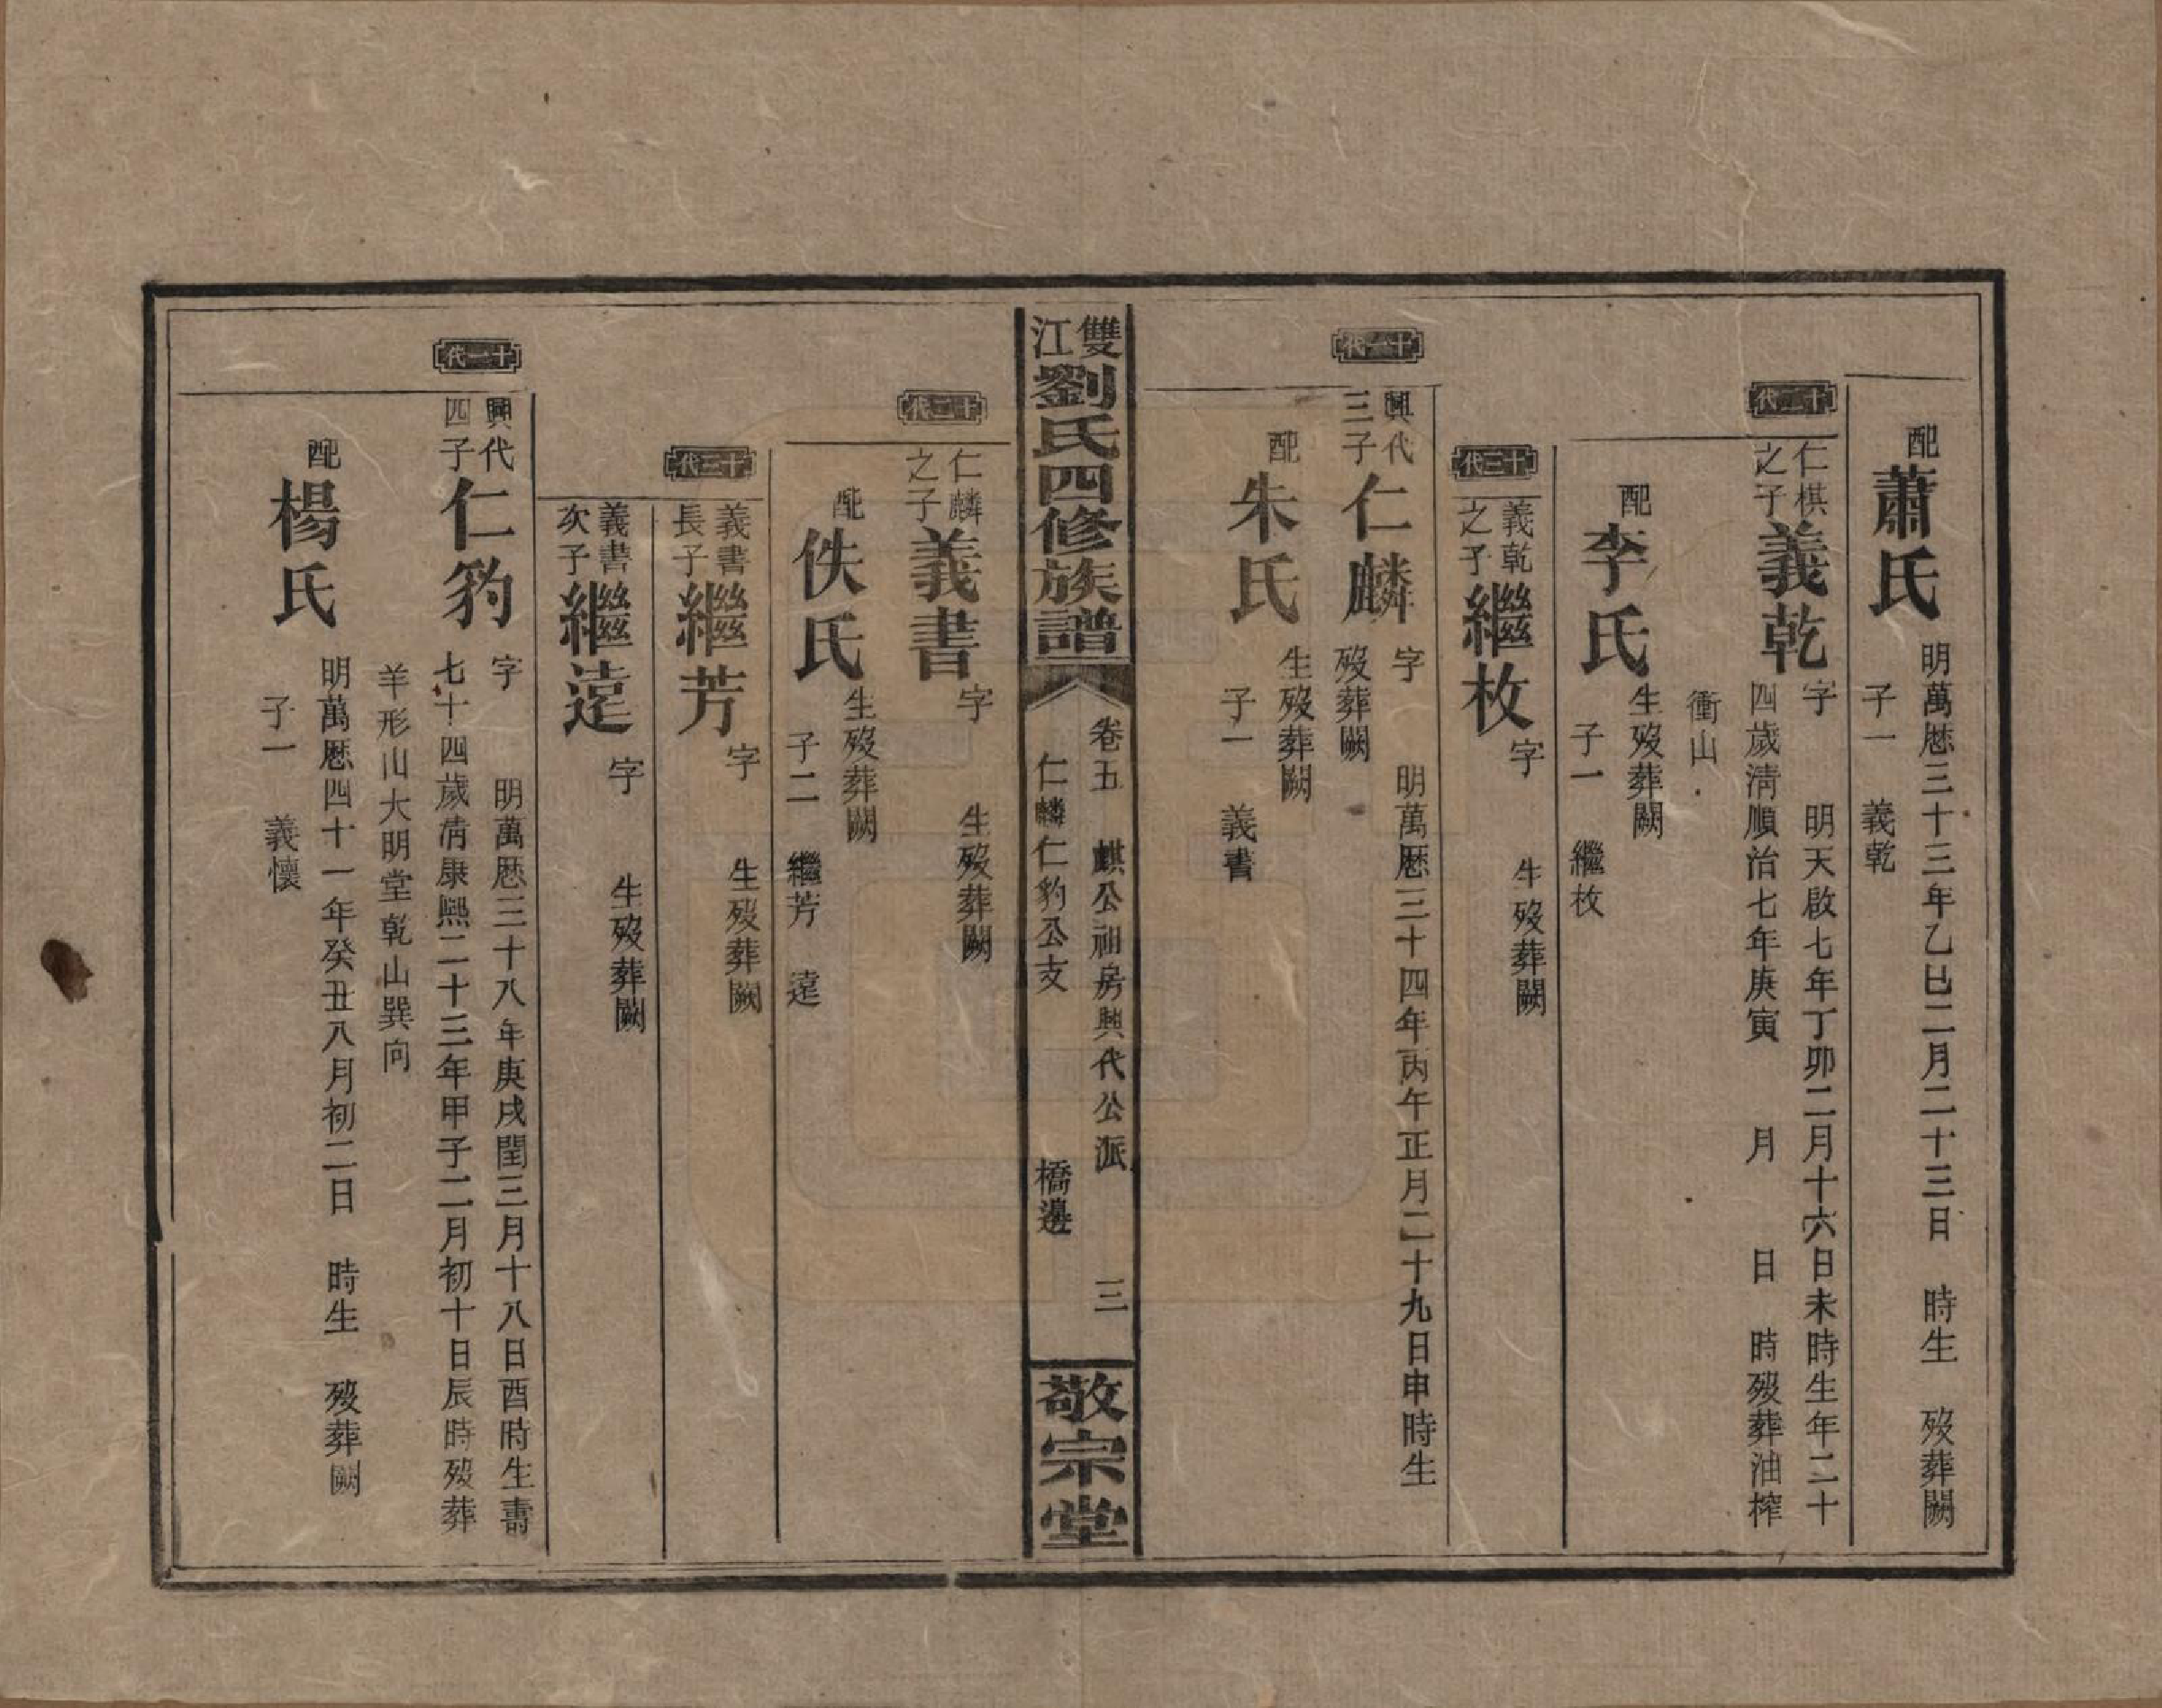 配蕭氏
明萬厯三十三年乙巳二月二十三日 時生 歿葬闕
子一 義乾
十二代
仁棋之子義乾
字 明天啟七年丁卯二月十六日未時生年二十
四歲淸順治七年庚寅 月 日 時歿葬油榨
衝山
配李氏
生歿葬闕
子一 繼枚
十三代
義乾之子繼枚
字 生歿葬闕
十一代
興代三子仁麟
字 明萬厯三十四年丙午正月二十九日申時生
歿葬闕
配朱氏
生歿葬闕
子一 義書
雙江劉氏四修族譜
卷五 麒公祖房興代公派 三
仁麟仁豹公支 橋邊
敬宗堂
十二代
仁麟之子義書
字 生歿葬闕
配佚氏
生歿葬闕
子二 繼芳 遠
十三代
義書長子繼芳
字 生歿葬闕
義書次子繼遠
字 生歿葬闕
十一代
興代四子仁豹
字 明萬厯三十八年庚戌閏三月十八日酉時生壽
七十四歲淸康熙二十三年甲子二月初十日辰時歿葬
羊形山大明堂乾山巽向
配楊氏
明萬厯四十一年癸丑八月初二日 時生 歿葬闕
子一 義懷